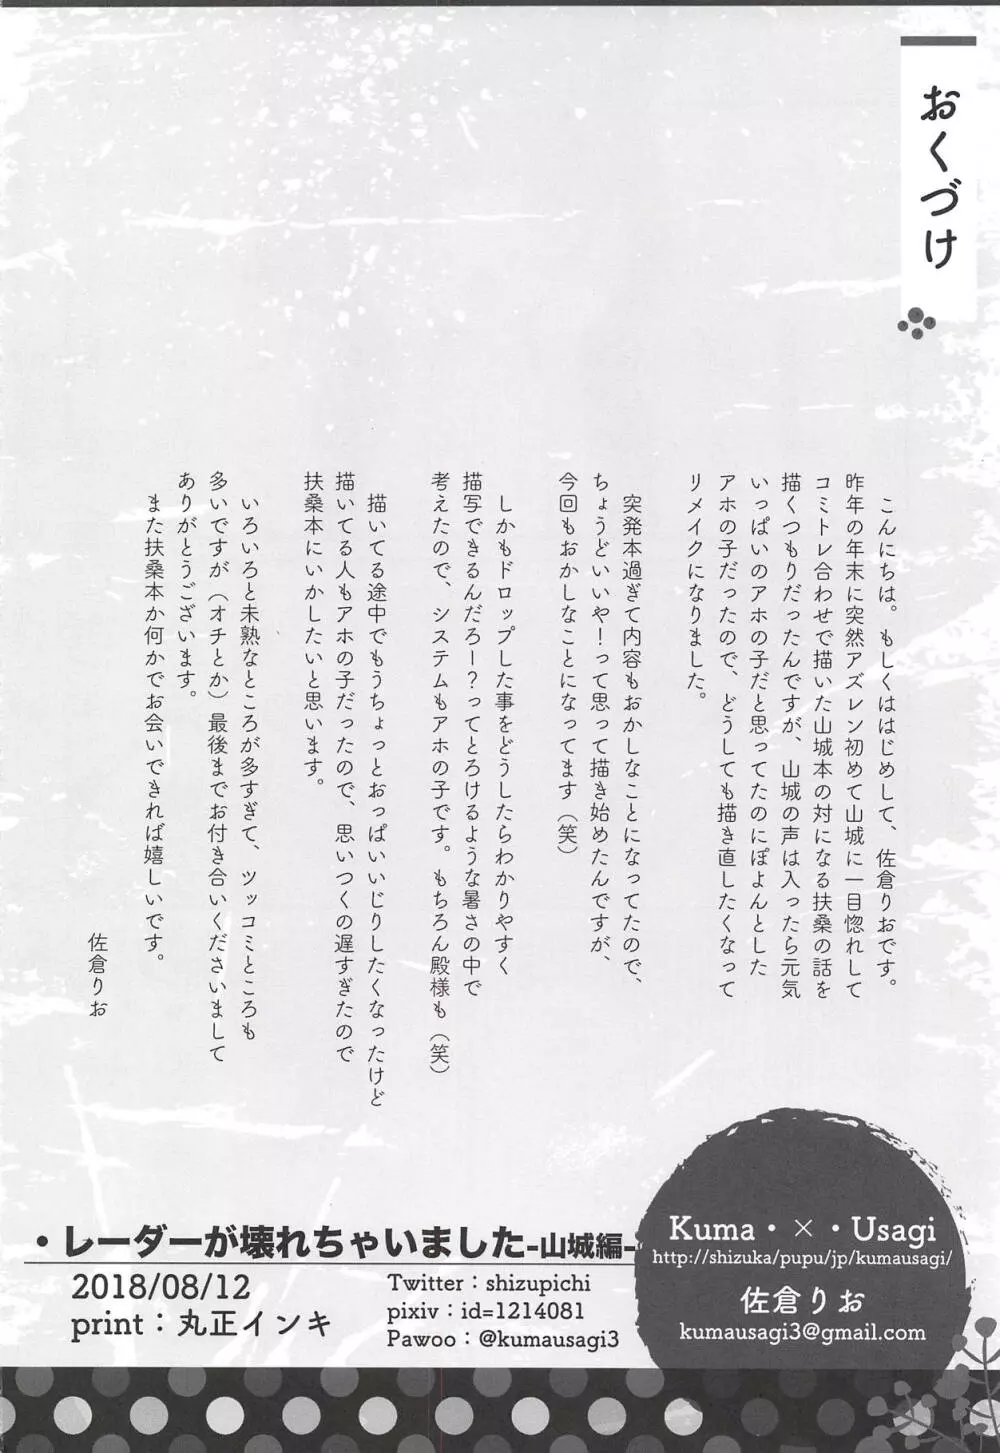 おくづけ
こんにちは。もしくははじめして、佐倉りおです。
昨年の年末に突然アズレン初めて山城に一目惚れして
コミトレ合わせで描いた山城本の対になる扶桑の話を
描くつもりだったんですが、山城の声は入ったら元気
いっぱいのアホの子だと思ってたのにぽよんとした
アホの子だったので、どうしても描き直したくなって
リメイクになりました。
突発本過ぎて内容もおかしなことになってたので、
ちょうどいいや！って思って描き始めたんですが、
今回もおかしなことになってます（笑）
しかもドロップした事をどうしたらわかりやすく
描写できるんだろー？ってとろけるような暑さの中で
考えたので、システムもアホの子です。もちろん殿様も（笑）
描いてる途中でもうちょっとおっぱいいじりしたくなったけど
描いてる人もアホの子だったので、思いつくの遅すぎたので
扶桑本にいかしたいと思います。
いろいろと未熟なところが多すぎて、ツッコミところも
多いですが（オチとか）最後までお付き合いくださいまして
ありがとうございます。
また扶桑本か何かでお会いできれば嬉しいです。
佐倉りお
・レーダーが壊れちゃいました-山城編-
2018/08/12
print：丸正インキ
Twitter：shizupichi
pixiv：id=1214081
Pawoo：@kumausagi3
Kuma・×・Usagi
http://shizuka/pupu/jp/kumausagi/
佐倉りお
kumausagi3@gmail.com